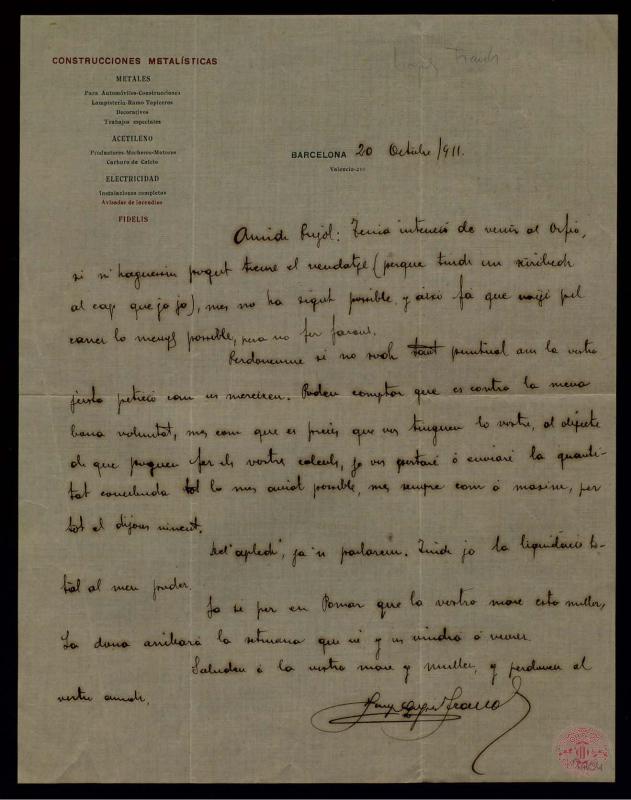 CONSTRUCCIONES METALÍSTICAS
METALES
Para Automóviles-Construcciones
Lampistería-Ramo Tapiceros
Decorativos
Trabajos especiales
ACETILENO
Productores-Mecheros-Motores
Carburo de Calcio
ELECTRICIDAD
Instalaciones completas
Avisador de incendios
FIDELIS
BARCELONA 20 Octubre/911.
Valencia-
Amich Pujol: Tenia intenció de venir al Orfeó,
si m'haguessin pogut treure el vendatge (perque tinch un
al cap que jo jo), mes no ha sigut possible y aixó fa que vagi pel
carrer lo menys possible, pera no fer farous.
Perdoneume si no soch tant puntual am la vostra
justa petició com us mereixeu. Podeu comptar que es contra la meva
bona voluntat, mes com que es precis que vos tingueu lo vostre, al objecte
de que pogueu fer els vostres calculs, jo vos portaré ó enviaré la quanti-
tat convinguda tot lo mes aviat possible, mes sempre com á maxim, per
tot el dijous vinent.
Del "aplech", ja 'n parlarem. Tinch jo la liquidació to-
tal al meu poder.
Ja sé per en Pomar que la vostra mare está millor,
La dona arribará la setmana que vé y us vindrá á veurer.
Saludeu á la vostra mare y muller, y perdoneu al
vostre amich,